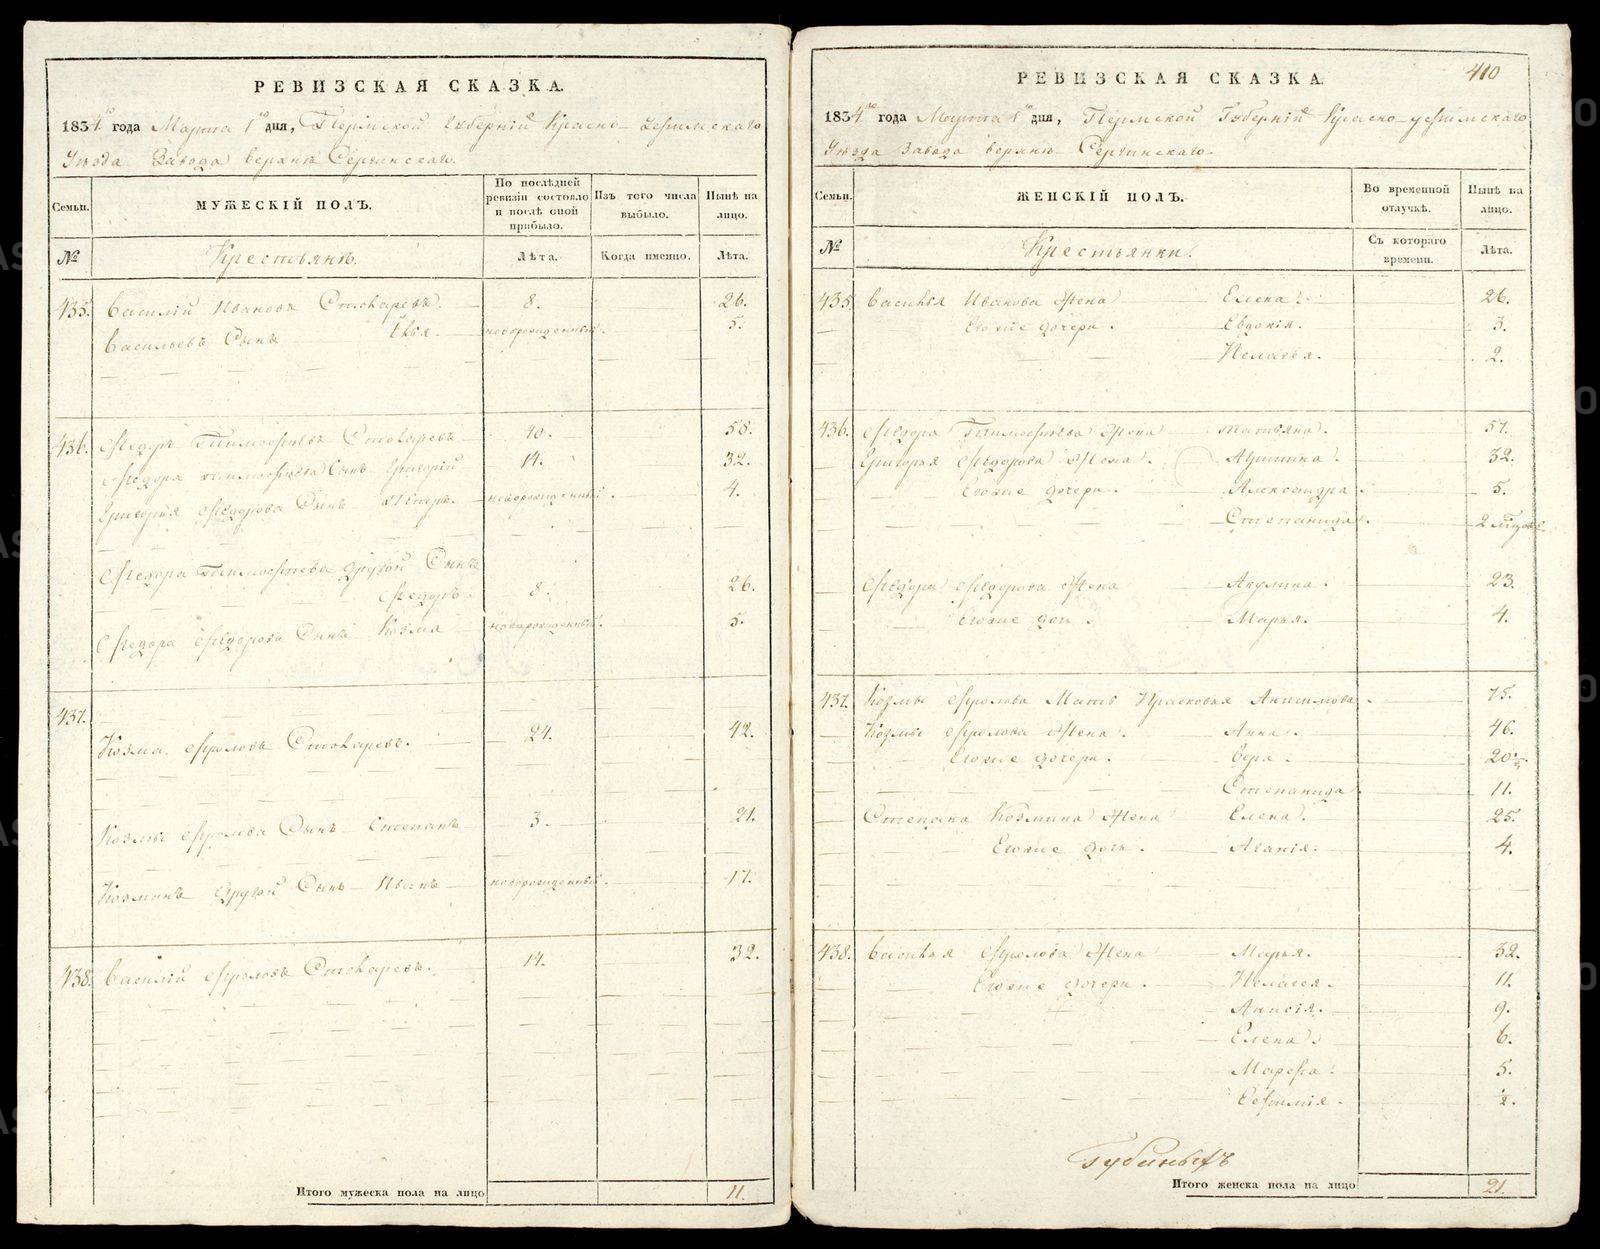 РЕВИЗСКАЯ СКАЗКА.
1834го года Марта 1го дня, Пермской Губернiй Красно-уфимскаго
Уѣзда Завода верхнѣ Сергинскаго.
Семьи.
МУЖЕСКIЙ ПОЛЪ.
По послѣдней ревизiи состояло и послѣ оной прибыло.
Изъ того числа выбыло.
Нынѣ на лицо.
№
Крестьянъ.
Лѣта.
Когда именно.
Лѣта.
435. Василiй Ивановъ 8. 26.
Васильевъ Сынъ Илья новорожденный. 5.
436. Ѳедоръ Тимоѳѣевъ 40. 58.
Ѳедора Тимоѳѣева Сынъ Григорiй 14. 32.
Григорья Ѳедорова Сынъ новорожденный. 4.
Ѳедора Тимоѳѣева другой Сынъ
Ѳедоръ 8. 26.
Ѳедора Ѳедорова Сынъ Козма новорожденный. 5.
437.
Козма Ѳроловъ 24. 42.
Козмы Ѳролова Сынъ Степанъ 3. 21.
Козминъ другой Сынъ Иванъ новорожденный. 17.
438. Василiй Ѳроловъ 14. 32.
Итого мужеска пола на лицо 11.
РЕВИЗСКАЯ СКАЗКА.
410
1834го года Марта 1го дня, Пермской Губернiй Красно-уфимскаго
Уѣзда Завода верхнѣ Сергинскаго.
Семьи.
ЖЕНСКIЙ ПОЛЪ.
Во временной отлучкѣ.
Нынѣ на лицо.
№
Крестьянки.
Съ котораго времени.
Лѣта.
435 Василья Иванова Жена Елена. 26.
Его же дочери. Евдокiя. 3.
Пелагея. 2.
436. Ѳедора Тимоѳѣева Жена Татьяна. 57.
Григорья Ѳедорова Жена. 32.
Его же дочери. Александра. 5.
Степанида. 2
Ѳедора Ѳедорова Жена Акулина. 23.
Его же дочь. Марья. 4.
437. Козмы Ѳролова Мать Прасковья Анисимова. 75.
Козмы Ѳролова Жена. Анна. 46.
Его же дочери. Вера. 20
Степанида. 11.
Степана Козмина Жена Елена. 25.
Его же дочь. Агапiя. 4.
438. Василья Ѳролова Жена Марья. 32.
Его же дочери. Пелагея. 11.
Анисiя. 9.
Елена. 6.
Марѳа. 5.
Евѳимiя. ½.
Губиныхъ
Итого женска пола на лицо 21.